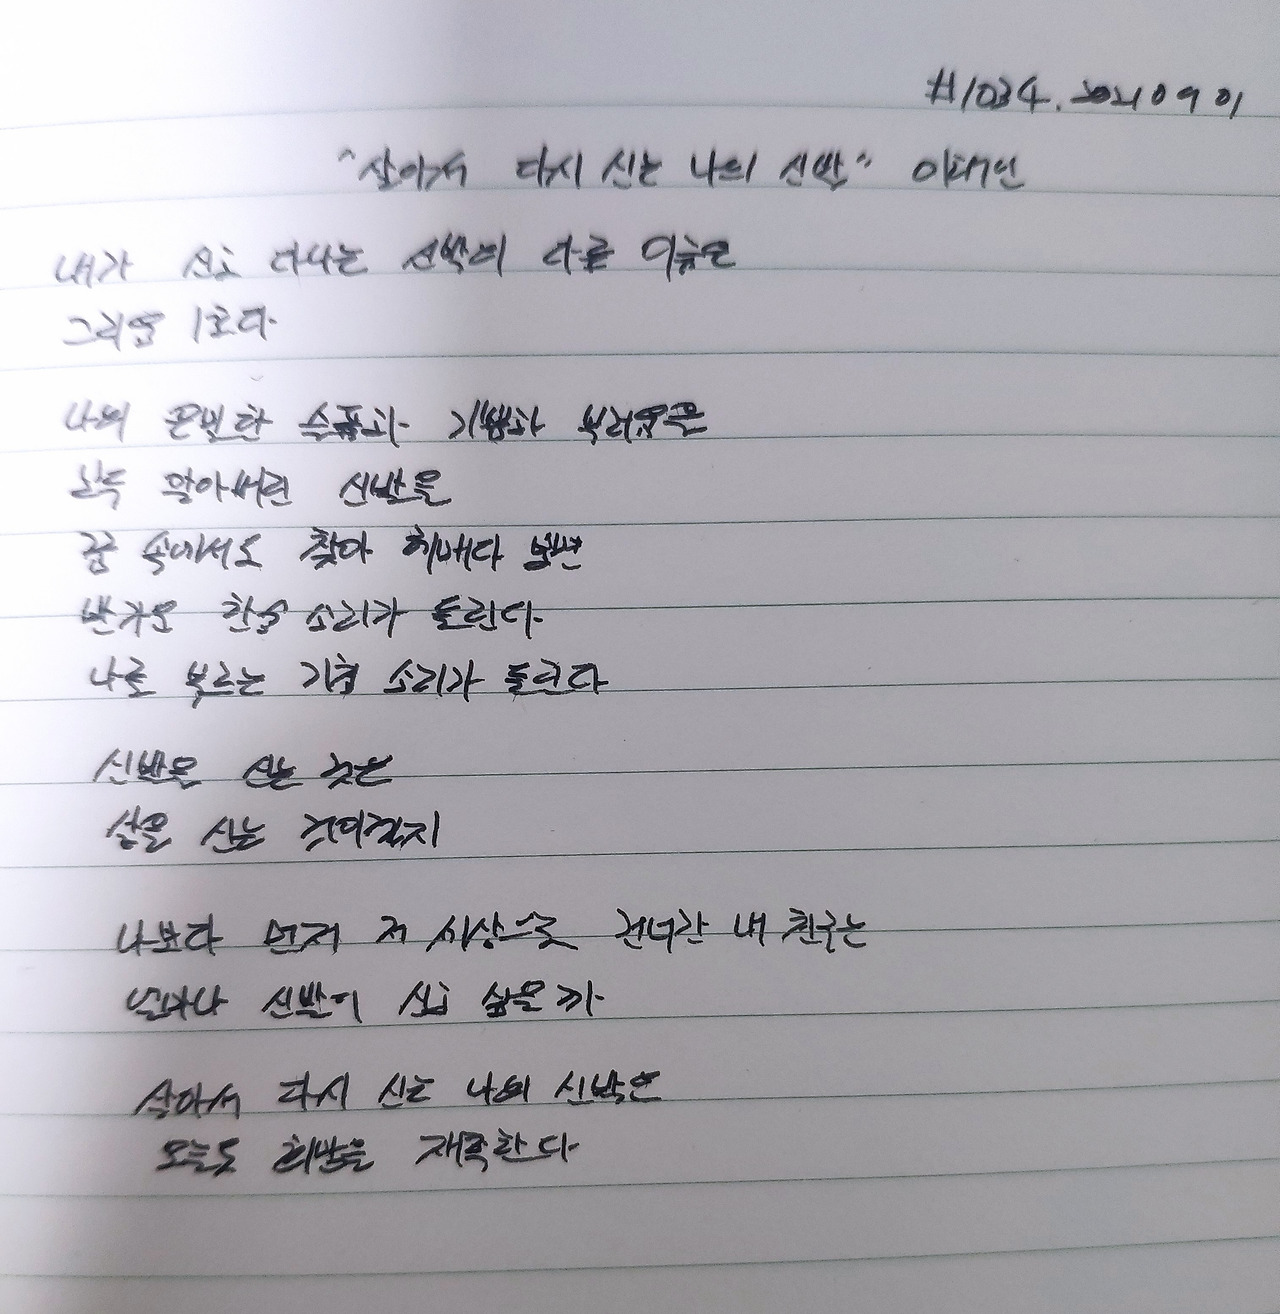 #1034. 20210901
"살아서 다시 신는 나의 신발" 이해인
내가 신고 다니는 신발의 다른 이름은
그리움 1호다
나의 은밀한 슬픔과 기쁨과 부러움을
모두 알아버린 신발을
꿈 속에서도 찾아 헤매다 보면
반가운 한숨 소리가 들린다
나를 부르는 기침 소리가 들린다
신발을 신는 것은
삶을 신는 것이겠지
나보다 먼저 저 세상으로 건너간 내 친구는
얼마나 신발이 신고 싶을까
살아서 다시 신는 나의 신발은
오늘도 희망을 재촉한다